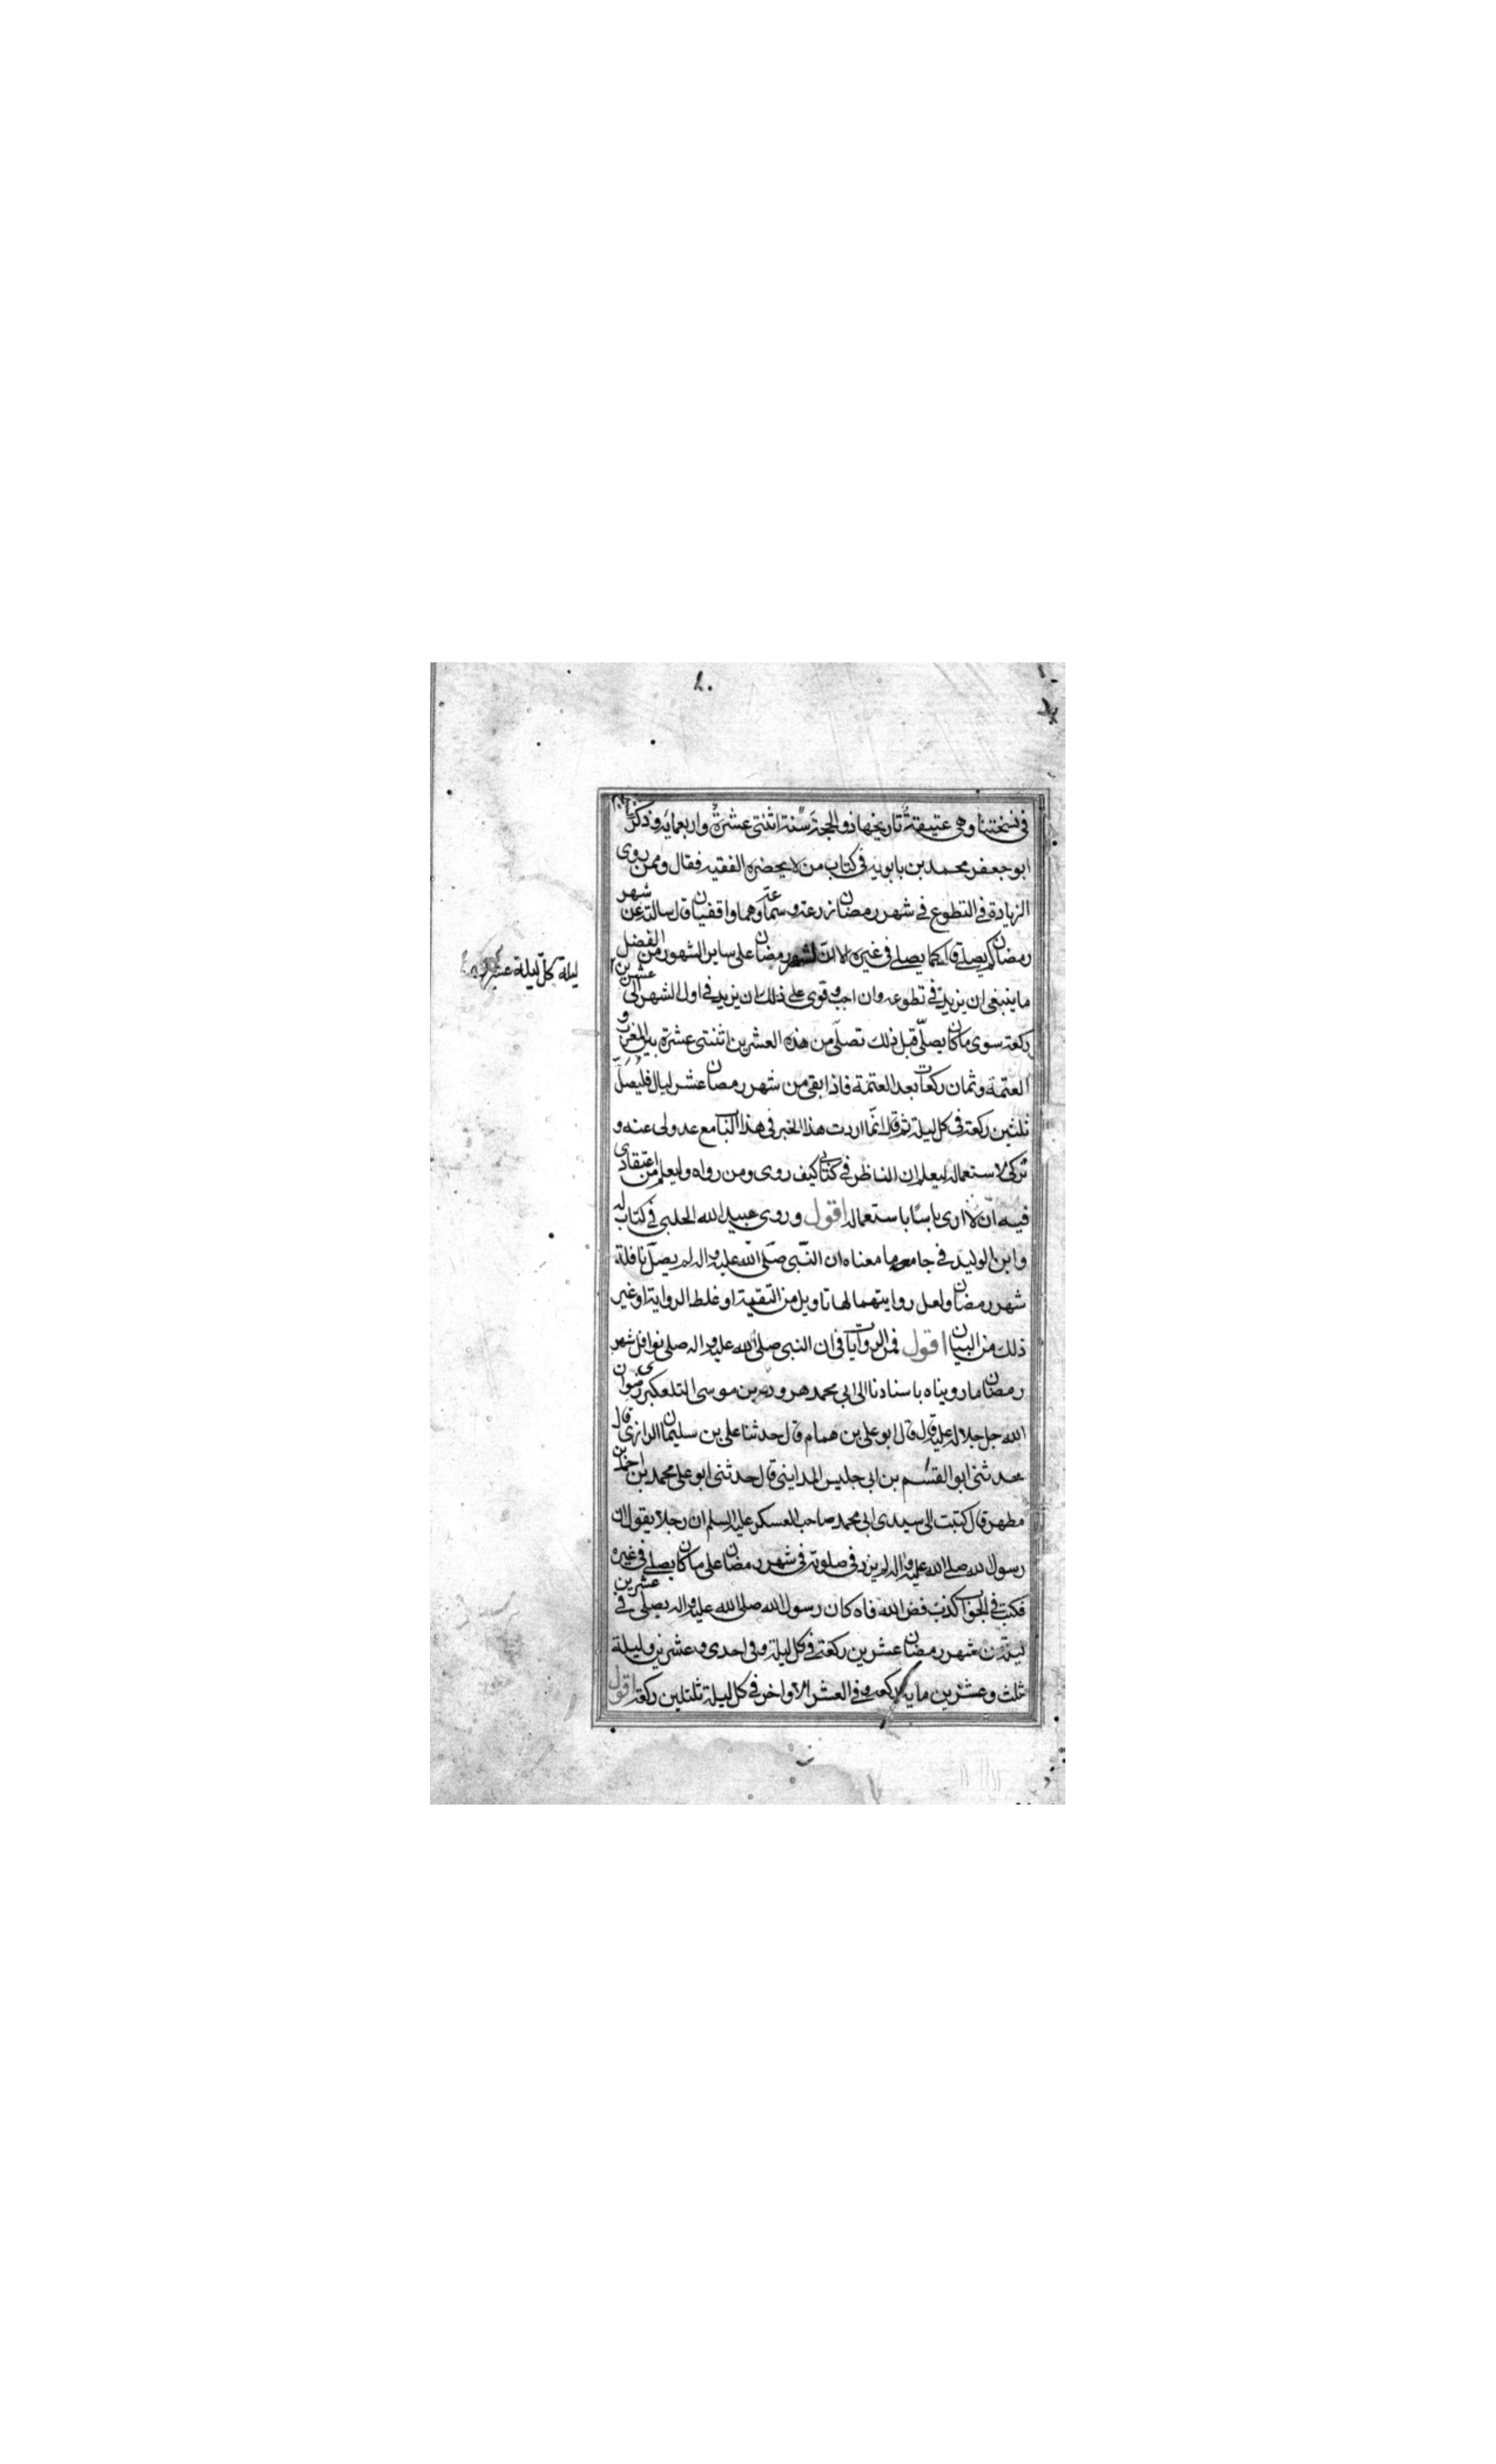 في نسختنا وهي عتيقة تاريخها ذو الحجة سنة اثنتي عشرة واربعمايه وذكر
ابو جعفر محمد بن بابويه في كتاب من لا يحضره الفقيه فقال وممن روى
الزيادة في التطوع في شهر رمضان زرعة عن سماعة وهما واقفيان قال سالته عن شهر
رمضان كم يصلي قال كما يصلي في غيره الا ان لشهر رمضان على ساير الشهور من الفضل
ما ينبغي ان يزيد في تطوعه وان احب وقوى على ذلك ان يزيد في اول الشهر الى عشرين
ليلة كل ليلة عشرين
ركعة سوى ما كان يصلي قبل ذلك تصلي من هذه العشرين اثنتي عشرة بين المغرب و
العتمة وثمان ركعات بعد العتمة فاذا بقى من شهر رمضان عشر ليال فليصل
ثلثين ركعة في كل ليلة ثم قال انما اردت هذا الخبر في هذا الباب مع عدولى عنه و
تركى لاستعماله ليعلم ان الناظر في كتابى كيف روى ومن رواه وليعلم من اعتقادى
فيه انى لا ارى باسا باستعماله اقول وروى عبيد الله الحلبى في كتاب له
وابن الوليد في جامعه ما معناه ان النبى صلى الله عليه واله لم يصل نافلة
شهر رمضان ولعل روايتهما لها تاويل من التقية او غلط الرواية او غير
ذلك من البيان اقول فمن الروايات في ان النبي صلى الله عليه واله صلى نوافل شهر
رمضان ما رويناه باسنادنا الى ابى محمد هرون بن موسى التلعكبرى رضوان
الله جل جلاله عليه قال قال ابو على بن همام قال حدثنا على بن سليمان الرازى قال
حدثنى ابو القسم بن ابى حليس المداينى قال حدثنى ابو على محمد بن احمد بن
مطهر قال كتبت الى سيدى ابى محمد صاحب العسكر عليه السلم ان رجلا يقول ان
رسول الله صلى الله عليه واله لم يزد في صلوته في شهر رمضان على ما كان يصلى في غيره
فكتب في الجواب كذب فض الله فاه كان رسول الله صلى الله عليه واله يصلى في عشرين
ليلة من شهر رمضان عشرين ركعة في كل ليلة وفى احدى وعشرين وليلة
ثلث وعشرين مايه ركعة وفى العشر الاواخر في كل ليلة ثلثين ركعة اقول